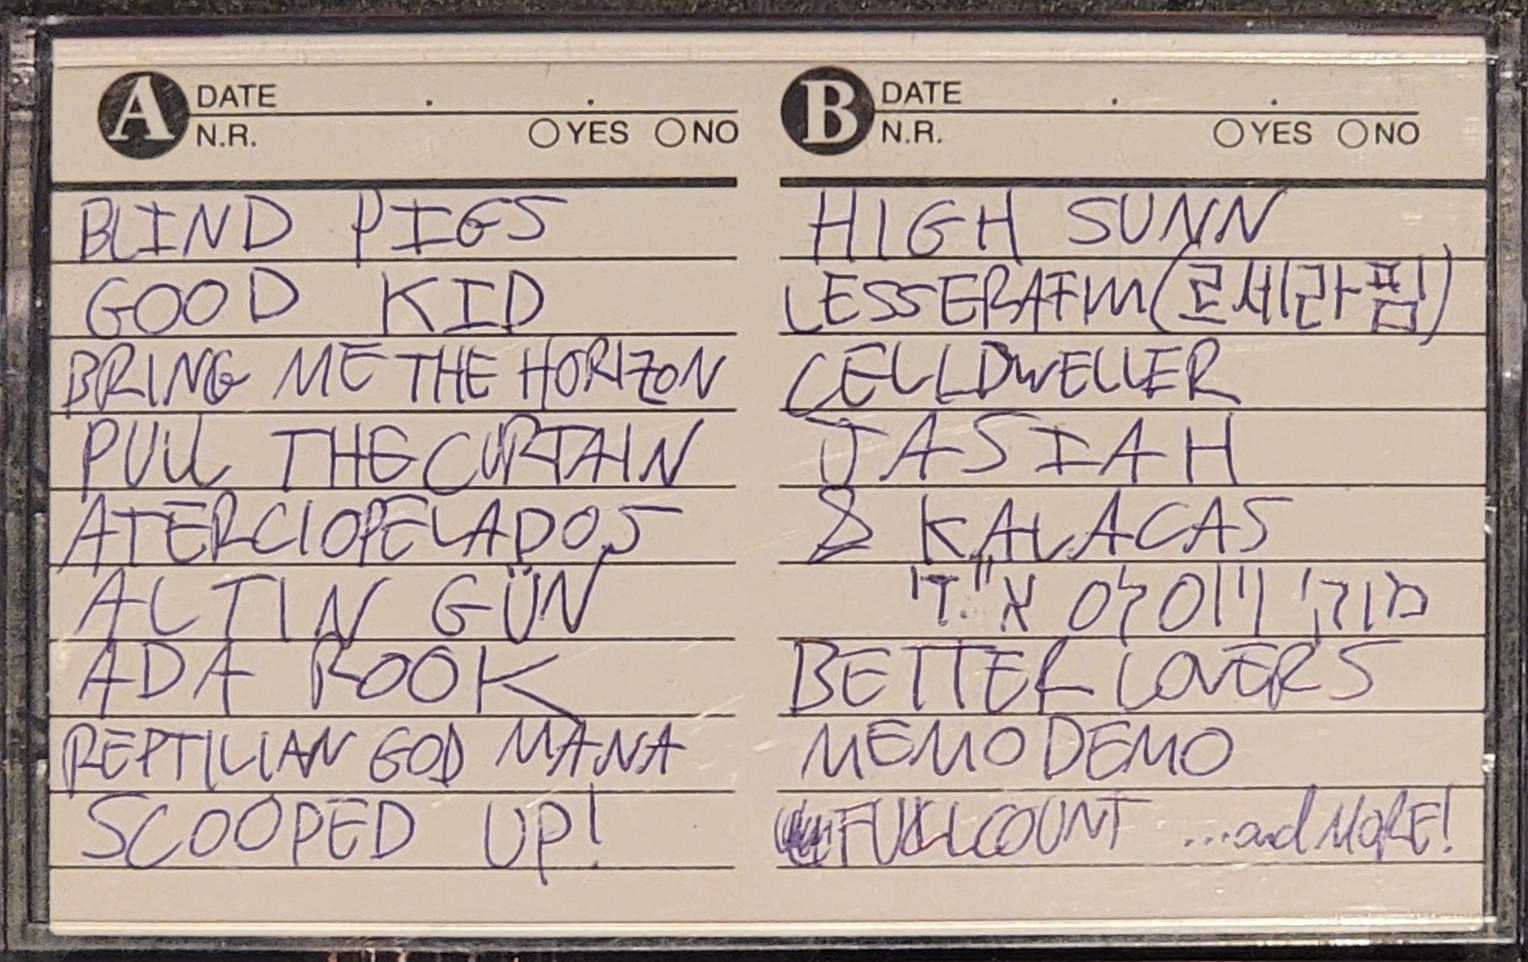 A DATE . .
N.R. YES NO
BLIND PIGS
GOOD KID
BRING ME THE HORIZON
PULL THE CURTAIN
ATERCIOPELADOS
ALTIN GÜN
ADA ROOK
REPTILIAN GOD MANA
SCOOPED UP!
B DATE . .
N.R. YES NO
HIGH SUNN
LESSERAFIM (르세라핌)
CELLDWELLER
JASIAH
& KALACAS
מוקי
BETTER LOVERS
MEMO DEMO
FULL COUNT ...and MORE!